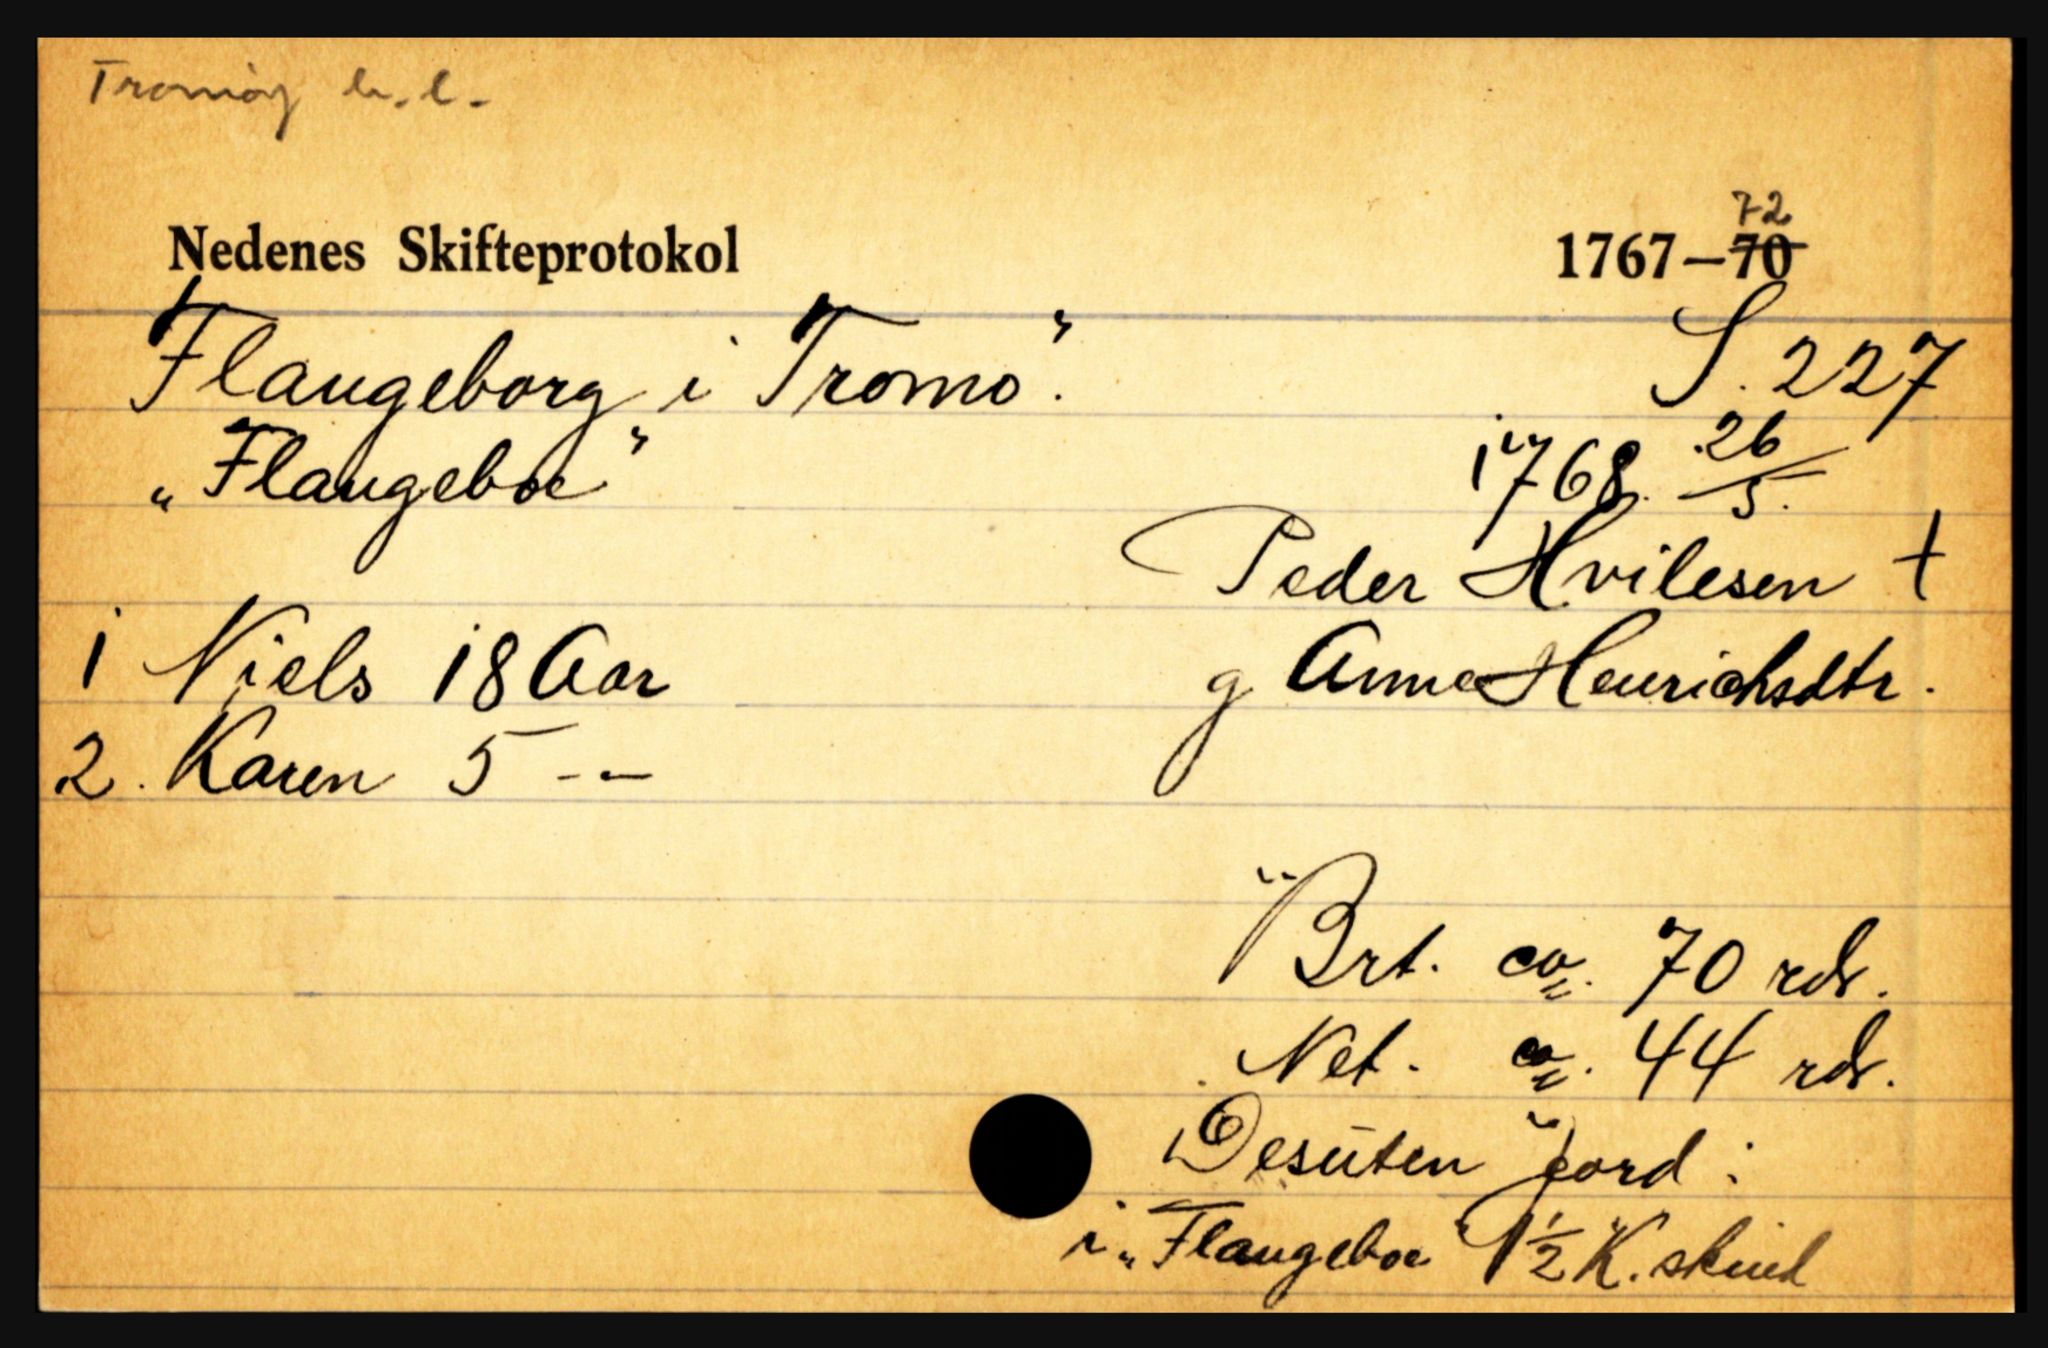 Tromøy h.l.
Nedenes Skifteprotokol 1767–70 72
Flangeborg i Tromø". S. 227
„Flangeboe" 1768. 26/5.
Peder Hvilesen †
1 Niels 18 Aar g Anne Henrichsdtr.
2. Karen 5 - -
Brt. ca. 70 rdr.
Net. ca. 44 rdr.
Desuten jord:
i „Flangeboe" 1½ K. skind